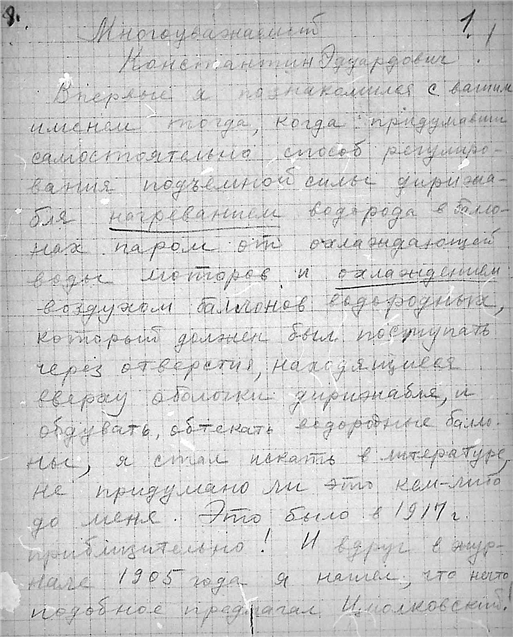 8. 1.
Многоуважаемый
Константин Эдуардович!
Впервые я познакомился с вашим
именем тогда, когда придумавши
самостоятельно способ регулиро-
вания подъемной силы дирижа-
бля нагреванием водорода в балло-
нах паром от охлаждающей
воды моторов и охлаждением
воздухом баллонов водородных,
который должен был поступать
через отверстия, находящиеся
вверху оболочки дирижабля, и
обдувать, обтекать водородные балло-
ны, я стал искать в литературе,
не придумано ли это кем-либо
до меня. Это было в 1917 г.
приблизительно! И вдруг в жур-
нале 1905 года я нашел, что нечто
подобное предлагал Циолковский!